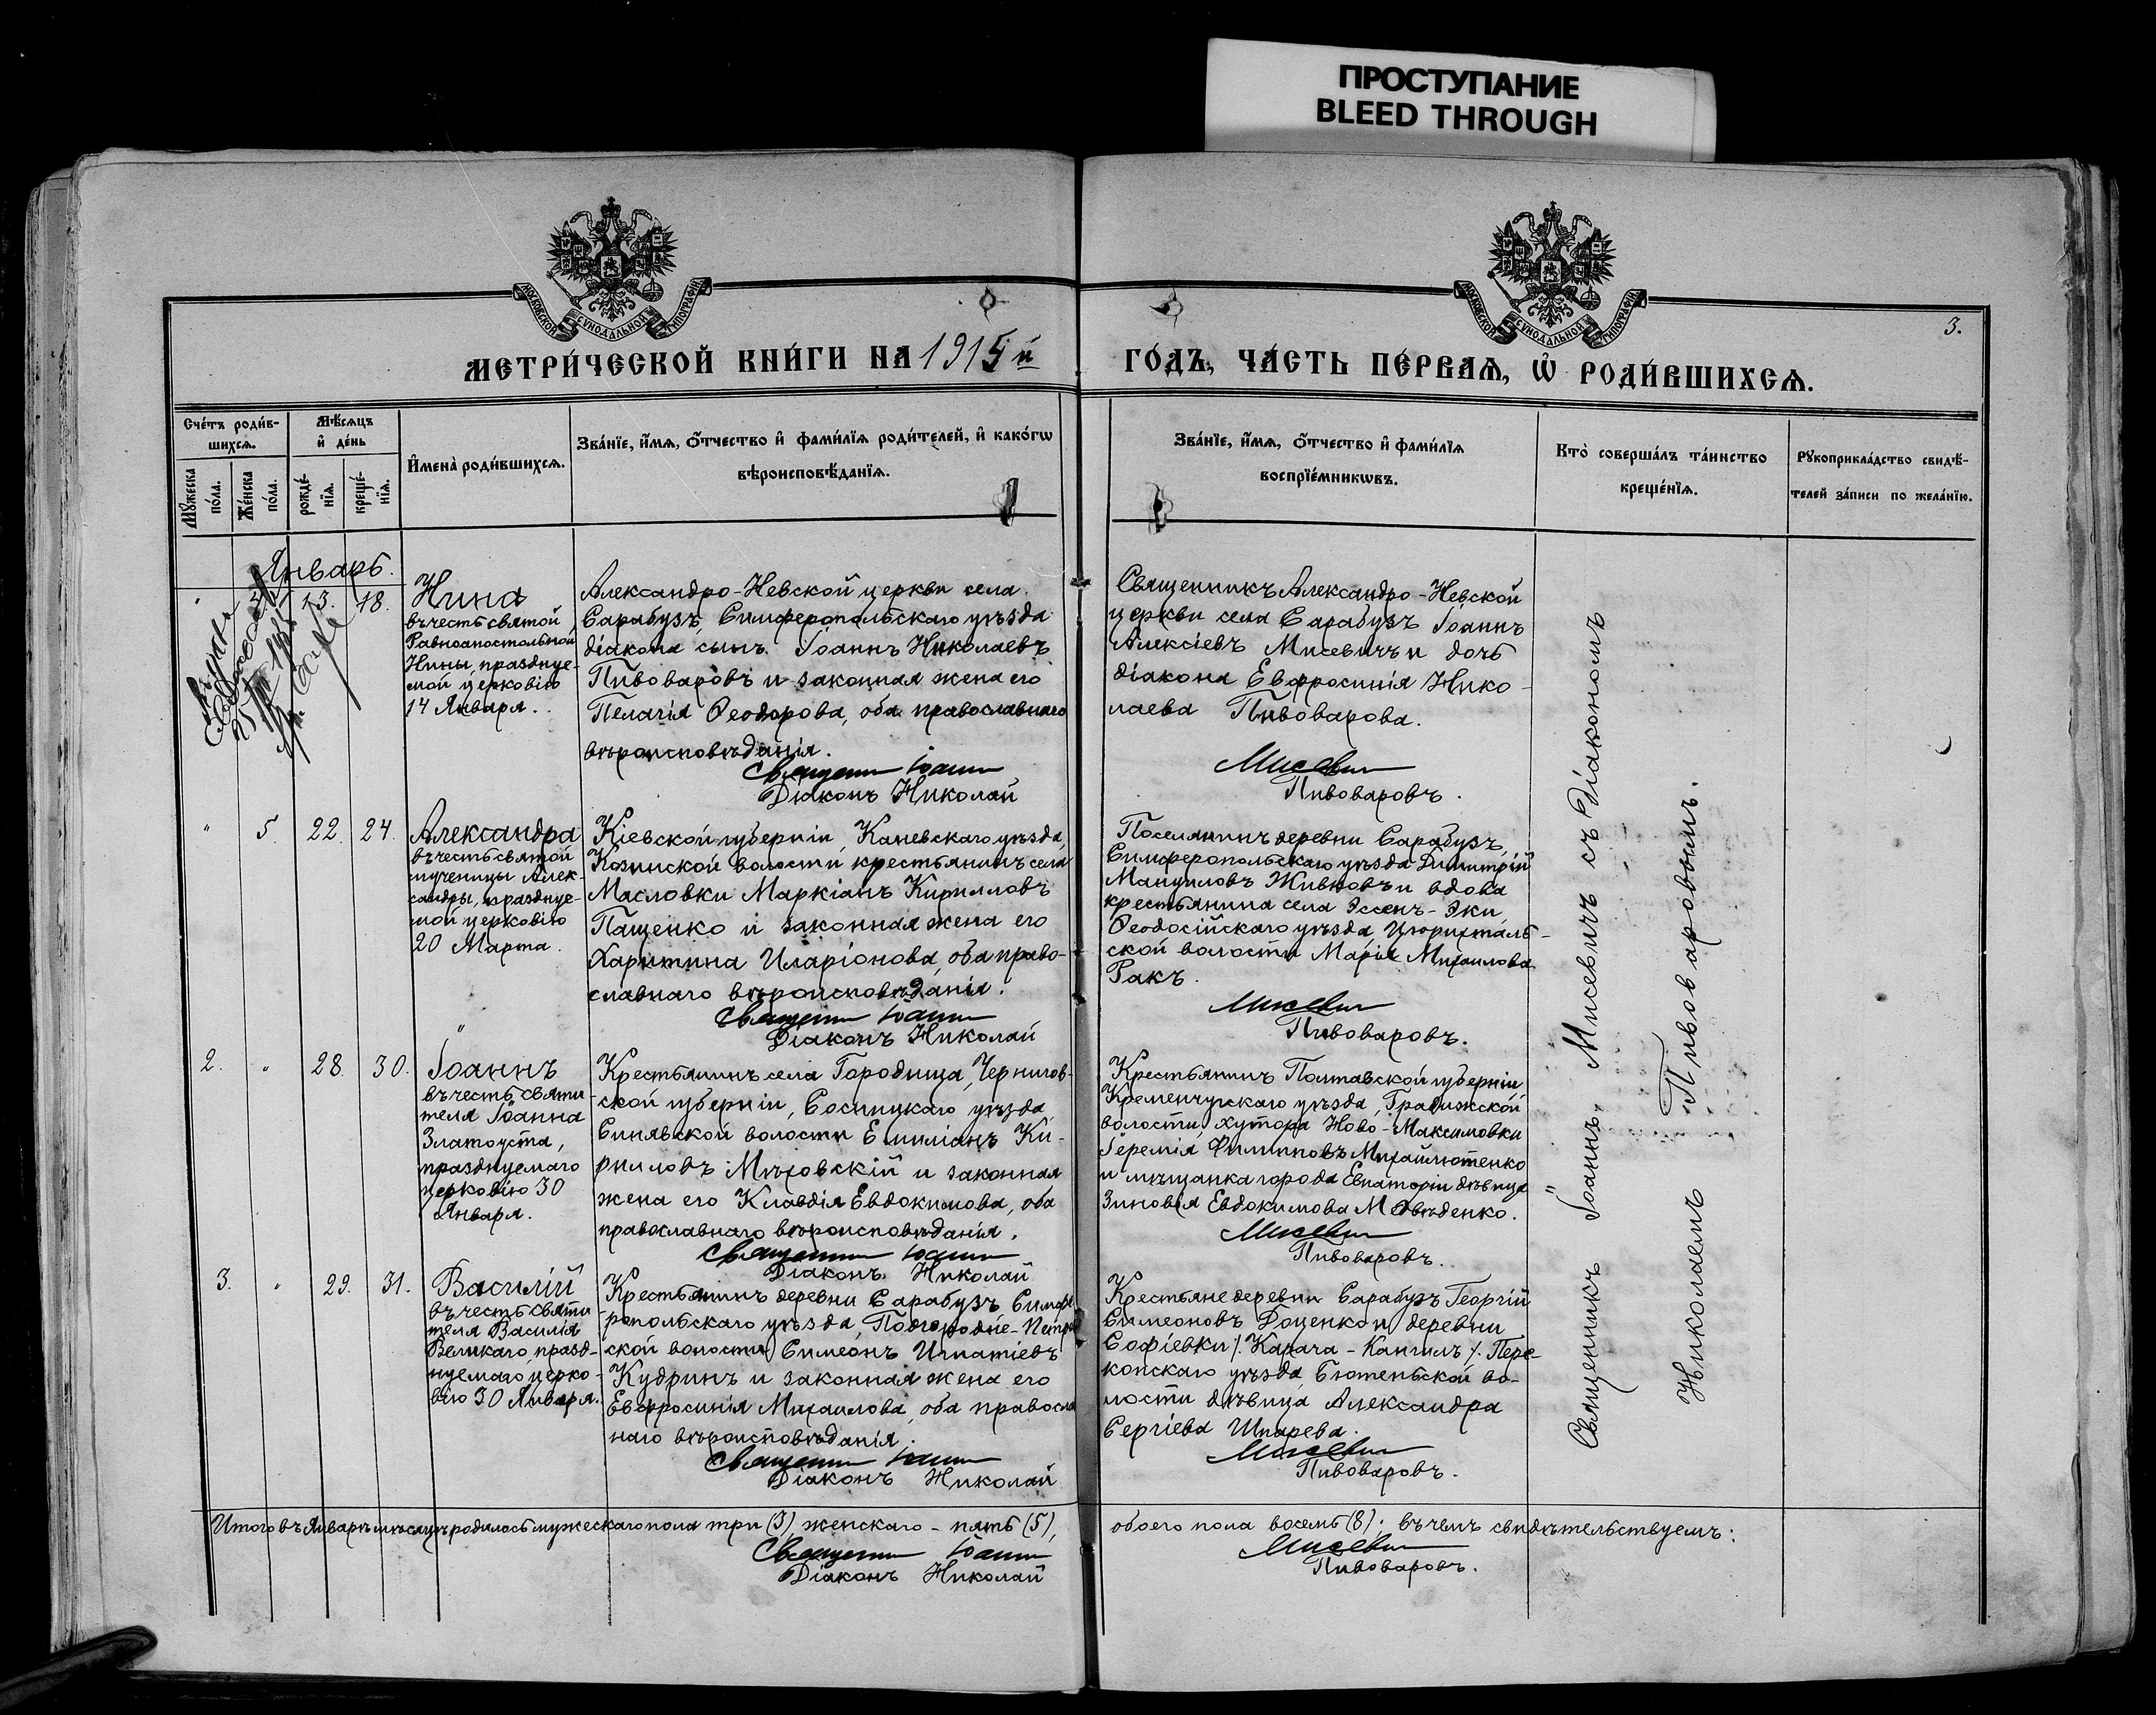 ПРОСТУПАНИЕ
BLEED THROUGH
МОСКОВСКОЙ СѴНОДАЛЬНОЙ ТИПОГРАФІИ
МОСКОВСКОЙ СѴНОДАЛЬНОЙ ТИПОГРАФІИ
3.
МЕТРИ́ЧЕСКОЙ КНИ́ГИ НА 1915й ГО́ДЪ, ЧА́СТЬ ПЕ́РВАѦ, Ѡ҆ РОДИ́ВШИХСѦ.
Сче́тъ роди́в-
шихсѧ.
Мѣ́сѧцъ
и҆ де́нь
Мꙋ́жеска
по́ла.
Же́нска
по́ла.
рожде́-
нїѧ.
креще́-
нїѧ.
И҆мена̀ роди́вшихсѧ.
Зва́нїе, и҆́мѧ, ѻ҆́тчество и҆ фами́лїѧ роди́телей, и҆ како́гѡ
вѣроисповѣ́данїѧ.
Зва́нїе, и҆́мѧ, ѻ҆́тчество и҆ фами́лїѧ
воспрїе́мникѡвъ.
Кто̀ соверша́лъ та́инство
креще́нїѧ.
Рꙋкоприкла́дство свидѣ́-
телей за́писи по жела́нїю.
Январь.
13. 18.
Нина
въ честь святой
Равноапостольной
Нины, празднуе-
мой церковію
14 Января.
Александро-Невской церкви села
Сарабузъ, Симферопольскаго уѣзда
діакона сынъ Іоаннъ Николаевъ
Пивоваровъ и законная жена его
Пелагія Ѳеодорова, оба православнаго
вѣроисповѣданія.
Священникъ Іоаннъ
Діаконъ Николай
Священникъ Александро-Невской
церкви села Сарабузъ Іоаннъ
Алексіевъ Мисевичъ и дочь
діакона Евфросинія Нико-
лаева Пивоварова.
Мисевичъ
Пивоваровъ.
" 5. 22. 24.
Александра
въ честь святой
мученицы Алек-
сандры, празднуе-
мой церковію
20 Марта.
Кіевской губерніи, Каневскаго уѣзда,
Козинской волости крестьянинъ села
Масловки Маркіанъ Кирилловъ
Пащенко и законная жена его
Харитина Иларіонова, оба право-
славнаго вѣроисповѣданія.
Священникъ Іоаннъ
Діаконъ Николай
Поселянинъ деревни Сарабузъ,
Симферопольскаго уѣзда Димитрій
Мануиловъ Живковъ и вдова
крестьянина села Эссенъ-Эки
Ѳеодосійскаго уѣзда Цюрихталь-
ской волости Марія Михаилова
Ракъ.
Мисевичъ
Пивоваровъ.
2. " 28. 30.
Іоаннъ
въ честь святи-
теля Іоанна
Златоуста,
празднуемаго
церковію 30
Января.
Крестьянинъ села Городища, Чернигов-
ской губерніи, Сосницкаго уѣзда
Синявской волости Емиліанъ Ки-
рилловъ Мѣховскій и законная
жена его Клавдія Евдокимова, оба
православнаго вѣроисповѣданія.
Священникъ Іоаннъ
Діаконъ Николай
Крестьянинъ Полтавской губерніи
Кременчугскаго уѣзда, Градижской
волости, хутора Ново-Максимовки
Іеремія Филипповъ Михайлютенко
и мѣщанка города Евпаторіи дѣвица
Зиновія Евдокимова Медвѣденко.
Мисевичъ
Пивоваровъ.
3. " 29. 31.
Василій
въ честь святи-
теля Василія
Великаго, празд-
нуемаго церко-
вію 30 Января.
Крестьянинъ деревни Сарабузъ Симфе
ропольскаго уѣзда, Подгородне-Петро
ской волости Симеонъ Игнатіевъ
Кудринъ и законная жена его
Евфросинія Михаилова, оба правосла
наго вѣроисповѣданія.
Священникъ Іоаннъ
Діаконъ Николай
Крестьяне деревни Сарабузъ Георгій
Симеоновъ Доценко и деревни
Софіевки /. Карача-Кангилъ /. Пере-
копскаго уѣзда Бютеньской во-
лости дѣвица Александра
Сергіева Шпарева.
Мисевичъ
Пивоваровъ.
Священникъ Іоаннъ Мисевичъ съ Діакономъ
Николаемъ Пивоваровымъ.
Итого въ Январѣ мѣсяцѣ родилось мужескаго пола три (3), женскаго - пять (5), обоего пола восемь (8); въ чемъ свидѣтельствуемъ:
Священникъ Іоаннъ Мисевичъ
Діаконъ Николай Пивоваровъ.